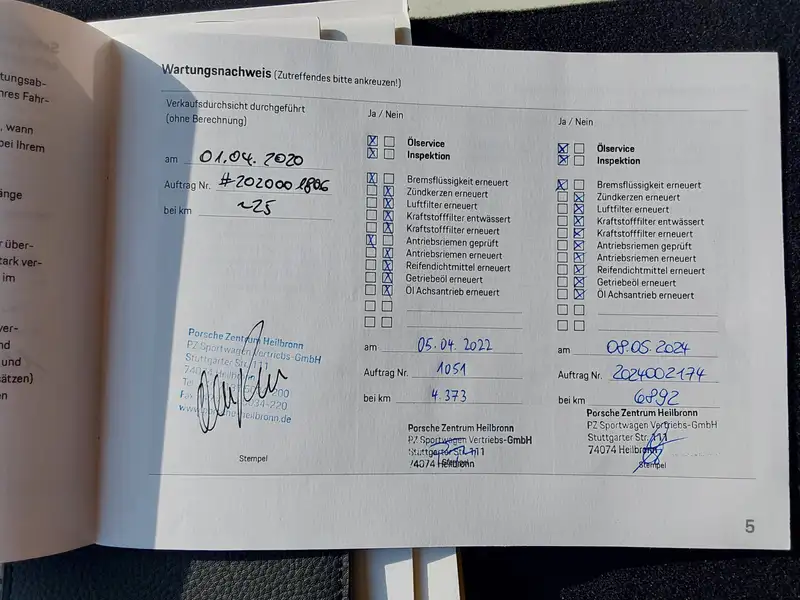 tungsab-
hres Fahr-
, wann
bei Ihrem
änge
r über-
tark ver-
im
ver-
nd
und
sätzen)
en
Wartungsnachweis (Zutreffendes bitte ankreuzen!)
Verkaufsdurchsicht durchgeführt
(ohne Berechnung)
am 01.04.2020
Auftrag Nr. #202000 1806
bei km ~25
Porsche Zentrum Heilbronn
PZ Sportwagen Vertriebs-GmbH
Stuttgarter Str. 111
74074 Heilbronn
Stempel
Ja / Nein
Ölservice
Inspektion
Bremsflüssigkeit erneuert
Zündkerzen erneuert
Luftfilter erneuert
Kraftstofffilter entwässert
Kraftstofffilter erneuert
Antriebsriemen geprüft
Antriebsriemen erneuert
Reifendichtmittel erneuert
Getriebeöl erneuert
Öl Achsantrieb erneuert
am 05.04.2022
Auftrag Nr. 1051
bei km 4.373
Porsche Zentrum Heilbronn
PZ Sportwagen Vertriebs-GmbH
Stuttgarter Str. 111
74074 Heilbronn
Ja / Nein
Ölservice
Inspektion
Bremsflüssigkeit erneuert
Zündkerzen erneuert
Luftfilter erneuert
Kraftstofffilter entwässert
Kraftstofffilter erneuert
Antriebsriemen geprüft
Antriebsriemen erneuert
Reifendichtmittel erneuert
Getriebeöl erneuert
Öl Achsantrieb erneuert
am 08.05.2024
Auftrag Nr. 2024002174
bei km 6892
Porsche Zentrum Heilbronn
PZ Sportwagen Vertriebs-GmbH
Stuttgarter Str. 111
74074 Heilbronn
Stempel
5